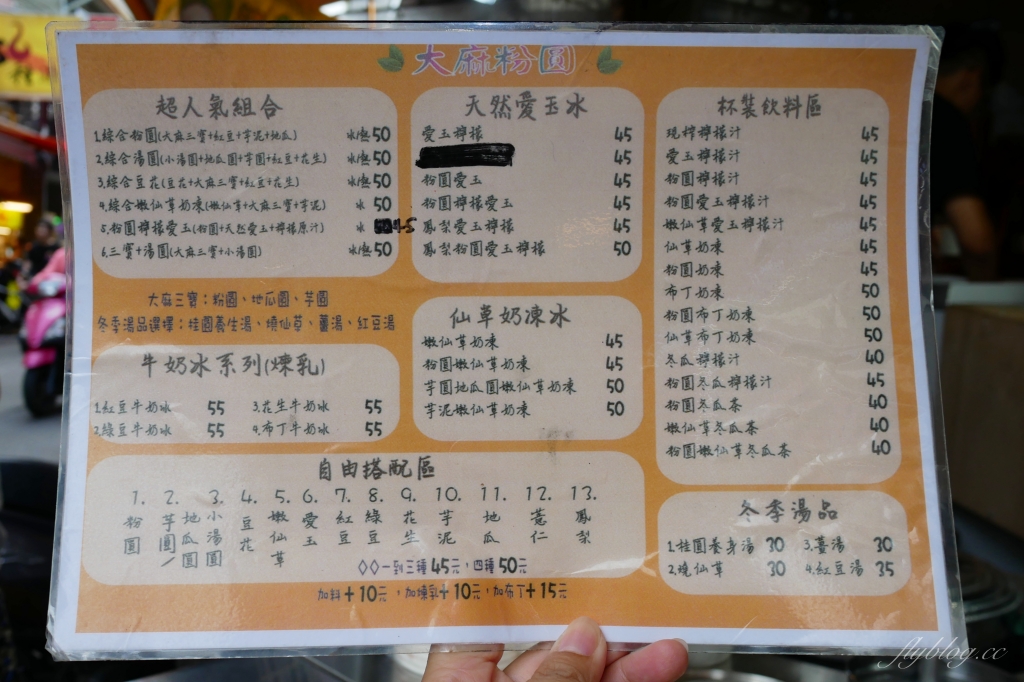 大麻粉圓
超人氣組合
1.綜合粉圓(大麻三寶+紅豆+芋泥+地瓜) 冰/熱 50
2.綜合湯圓(小湯圓+地瓜圓+芋圓+紅豆+花生) 冰/熱 50
3.綜合豆花(豆花+大麻三寶+紅豆+花生) 冰/熱 50
4.綜合嫩仙草奶凍(嫩仙草+大麻三寶+芋泥) 冰 50
5.粉圓檸檬愛玉(粉圓+天然愛玉+檸檬原汁) 冰 45
6.三寶+湯圓(大麻三寶+小湯圓) 冰/熱 50
大麻三寶:粉圓、地瓜圓、芋圓
冬季湯品選擇:桂圓養生湯、燒仙草、薑湯、紅豆湯
牛奶冰系列(煉乳)
1.紅豆牛奶冰 55 3.花生牛奶冰 55
2.綠豆牛奶冰 55 4.布丁牛奶冰 55
天然愛玉冰
愛玉檸檬 45
45
粉圓愛玉 45
粉圓檸檬愛玉 45
鳳梨愛玉檸檬 45
鳳梨粉圓愛玉檸檬 50
仙草奶凍冰
嫩仙草奶凍 45
粉圓嫩仙草奶凍 45
芋圓地瓜圓嫩仙草奶凍 50
芋泥嫩仙草奶凍 50
杯裝飲料區
現榨檸檬汁 45
愛玉檸檬汁 45
粉圓檸檬汁 45
粉圓愛玉檸檬汁 45
嫩仙草愛玉檸檬汁 45
仙草奶凍 45
粉圓奶凍 45
布丁奶凍 50
粉圓布丁奶凍 50
仙草布丁奶凍 50
冬瓜檸檬汁 40
粉圓冬瓜檸檬汁 45
粉圓冬瓜茶 40
嫩仙草冬瓜茶 40
粉圓嫩仙草冬瓜茶 40
自由搭配區
1. 粉圓
2. 芋圓
3. 地瓜圓/小湯圓
4. 豆花
5. 嫩仙草
6. 愛玉
7. 紅豆
8. 綠豆
9. 花生
10. 芋泥
11. 地瓜
12. 薏仁
13. 鳳梨
◇◇一到三種45元,四種50元
加料+10元,加煉乳+10元,加布丁+15元
冬季湯品
1.桂圓養身湯 30 3.薑湯 30
2.燒仙草 30 4.紅豆湯 35
flyblog.cc